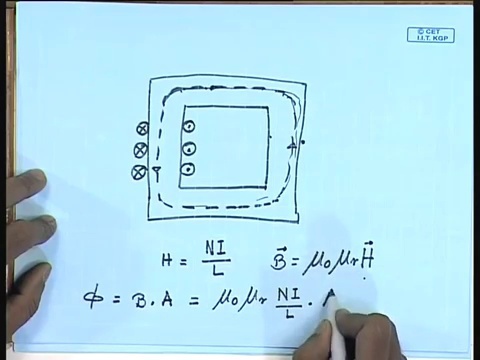 © CET
I.I.T. KGP
H = NI/L    B⃗ = μ₀ μr H⃗
ϕ = B . A = μ₀ μr NI/L .